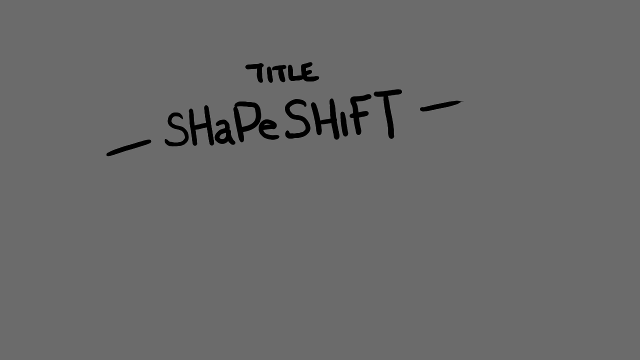 TITLE
— SHaPeSHiFT —